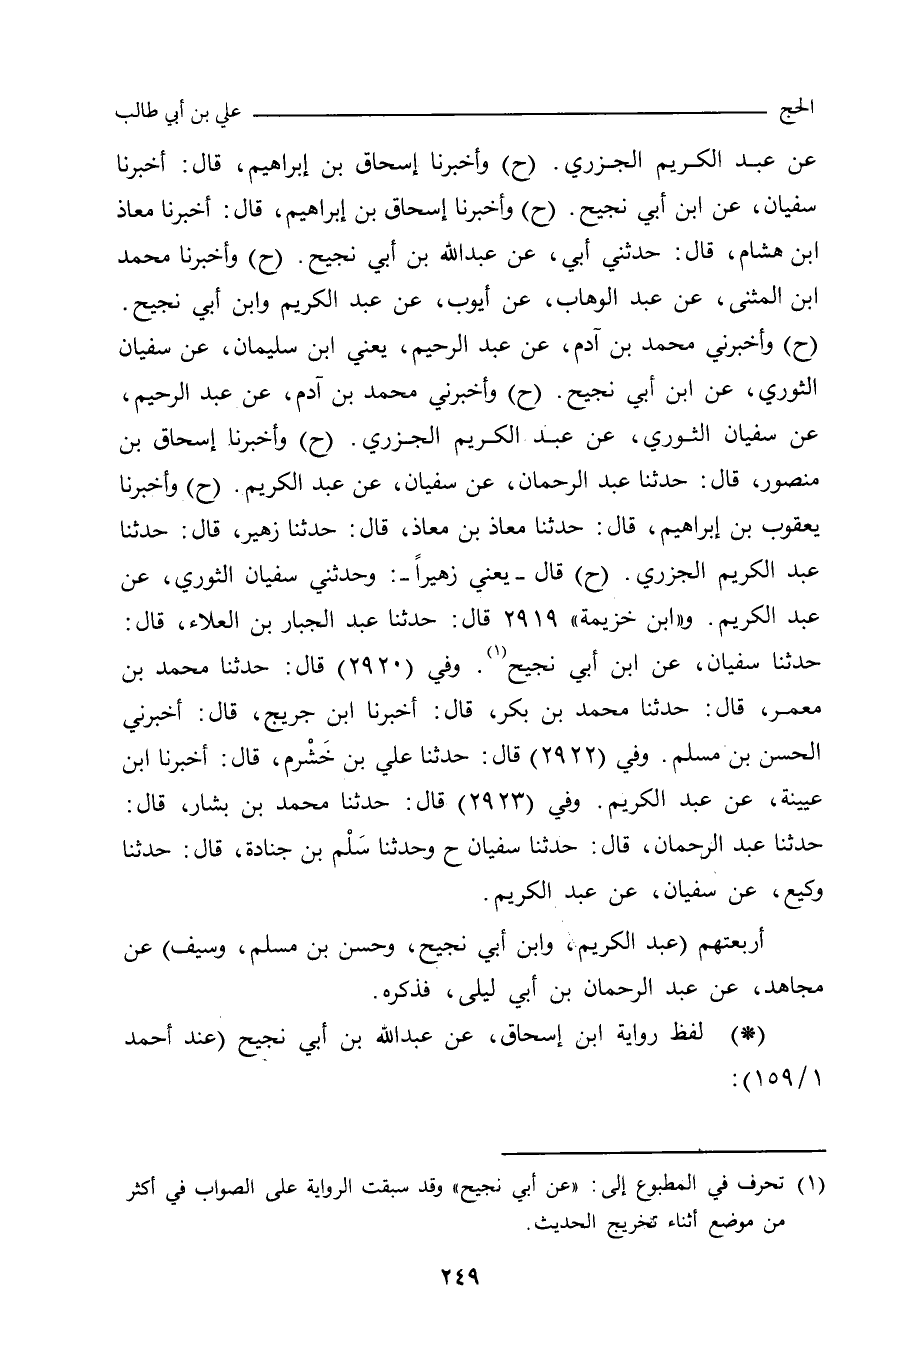 الحج علي بن أبي طالب
عن عبد الكريم الجزري. (ح) وأخبرنا إسحاق بن إبراهيم، قال: أخبرنا
سفيان، عن ابن أبي نجيح. (ح) وأخبرنا إسحاق بن إبراهيم، قال: أخبرنا معاذ
ابن هشام، قال: حدثني أبي، عن عبدالله بن أبي نجيح. (ح) وأخبرنا محمد
ابن المثنى، عن عبد الوهاب، عن أيوب، عن عبد الكريم وابن أبي نجيح.
(ح) وأخبرني محمد بن آدم، عن عبد الرحيم، يعني ابن سليمان، عن سفيان
الثوري، عن ابن أبي نجيح. (ح) وأخبرني محمد بن آدم، عن عبد الرحيم،
عن سفيان الثوري، عن عبد الكريم الجزري. (ح) وأخبرنا إسحاق بن
منصور، قال: حدثنا عبد الرحمان، عن سفيان، عن عبد الكريم. (ح) وأخبرنا
يعقوب بن إبراهيم، قال: حدثنا معاذ بن معاذ، قال: حدثنا زهير، قال: حدثنا
عبد الكريم الجزري. (ح) قال ـ يعني زهيراً ـ: وحدثني سفيان الثوري، عن
عبد الكريم. و«ابن خزيمة» ٢٩١٩ قال: حدثنا عبد الجبار بن العلاء، قال:
حدثنا سفيان، عن ابن أبي نجيح(١). وفي (٢٩٢٠) قال: حدثنا محمد بن
معمر، قال: حدثنا محمد بن بكر، قال: أخبرنا ابن جريج، قال: أخبرني
الحسن بن مسلم. وفي (٢٩٢٢) قال: حدثنا علي بن خَشْرم، قال: أخبرنا ابن
عيينة، عن عبد الكريم. وفي (٢٩٢٣) قال: حدثنا محمد بن بشار، قال:
حدثنا عبد الرحمان، قال: حدثنا سفيان ح وحدثنا سَلْم بن جنادة، قال: حدثنا
وكيع، عن سفيان، عن عبد الكريم.
أربعتهم (عبد الكريم، وابن أبي نجيح، وحسن بن مسلم، وسيف) عن
مجاهد، عن عبد الرحمان بن أبي ليلى، فذكره.
(*) لفظ رواية ابن إسحاق، عن عبدالله بن أبي نجيح (عند أحمد
١/١٥٩):
(١) تحرف في المطبوع إلى: «عن أبي نجيح» وقد سبقت الرواية على الصواب في أكثر
من موضع أثناء تخريج الحديث.
٢٤٩